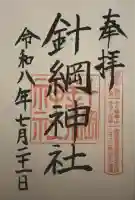 奉拝
針綱神社
令和八年七月二十一日